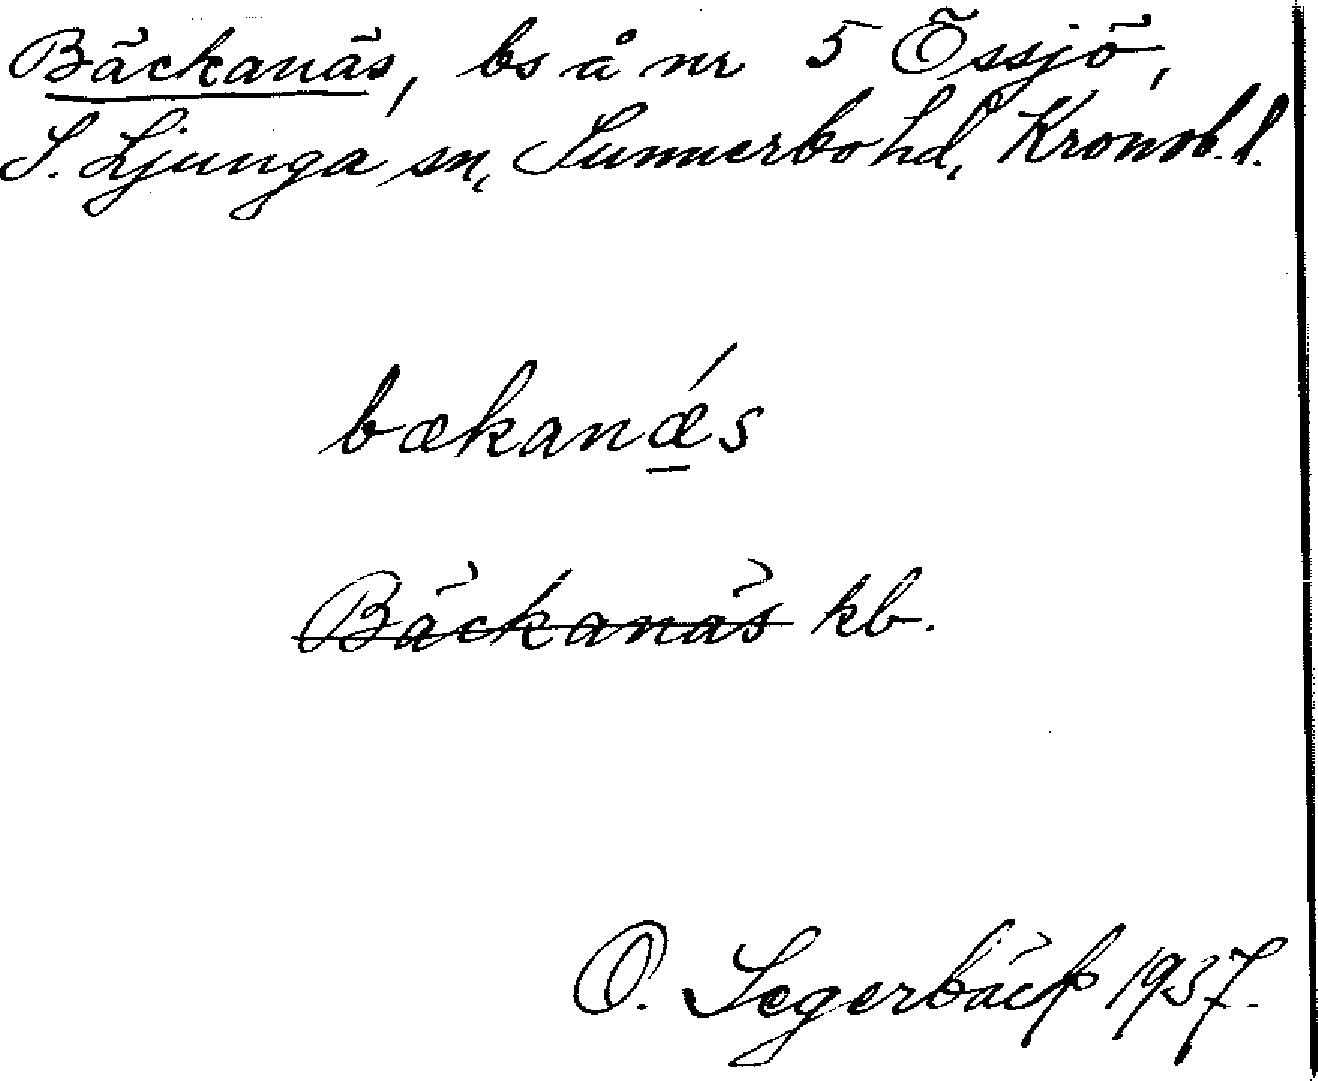 Bäckanäs, bs å nr 5 Össjö,
S. Ljunga sn, Sunnerbo hd, Kronob. l.
bækanǽs
Bäckanäs kb.
O. Segerbäck 1937.